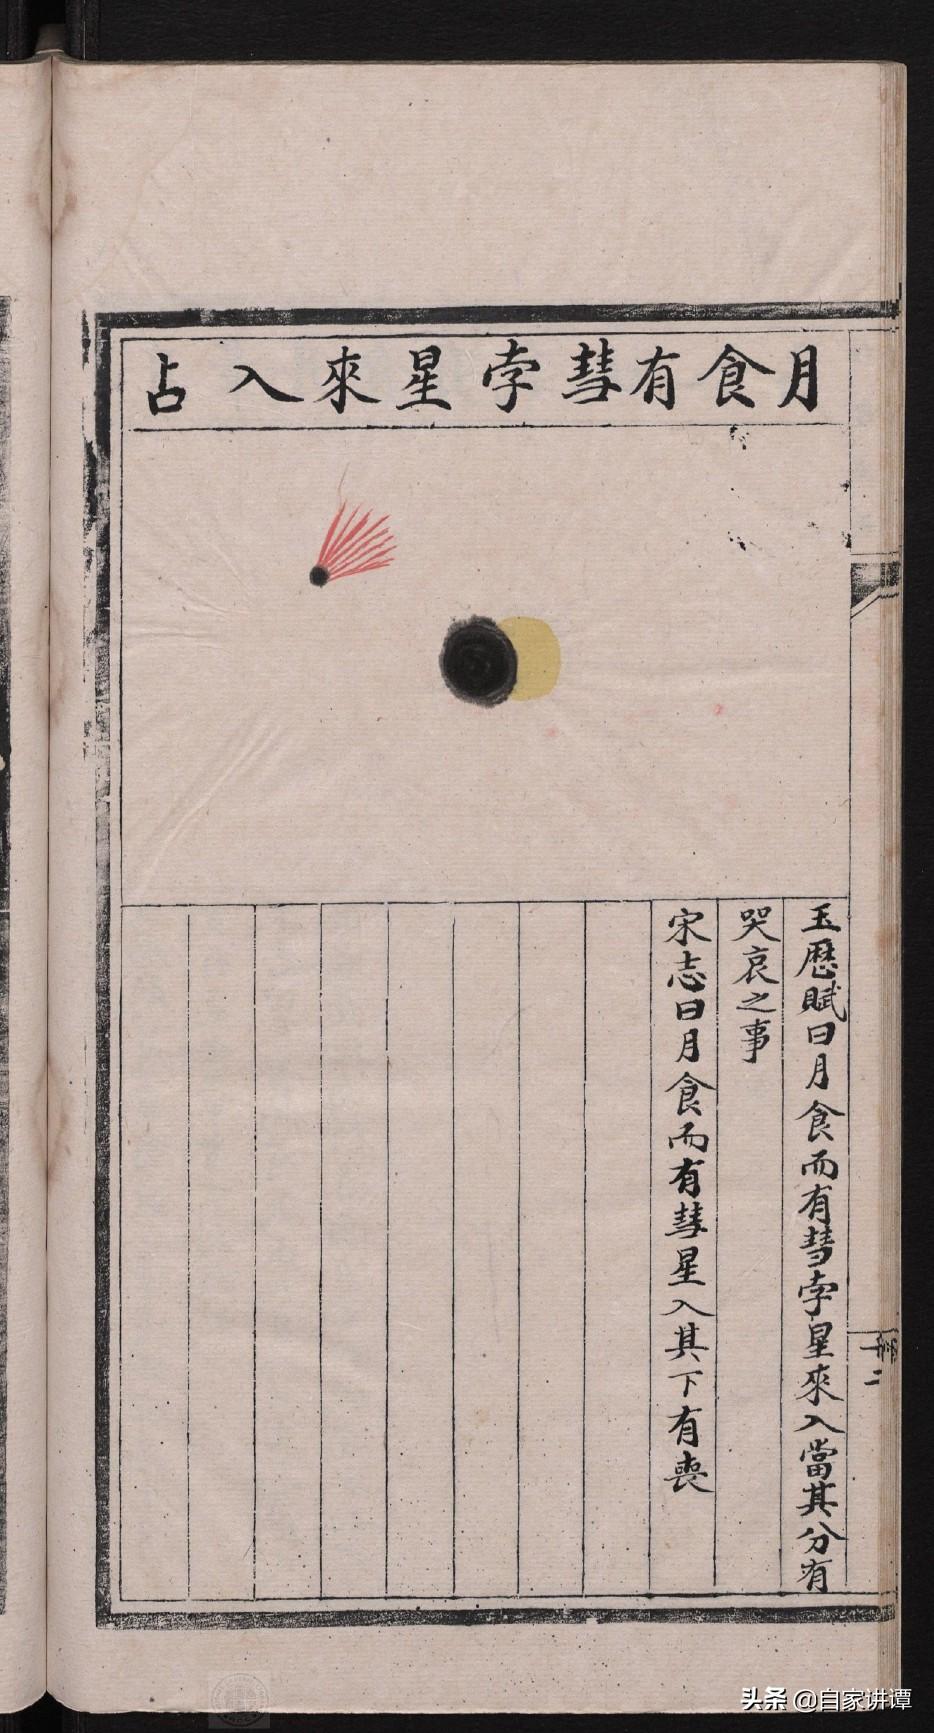 月食有彗孛星來入占
玉歷賦曰月食而有彗孛星來入當其分有
哭哀之事
宋志曰月食而有彗星入其下有喪
二
头条 @自家讲谭